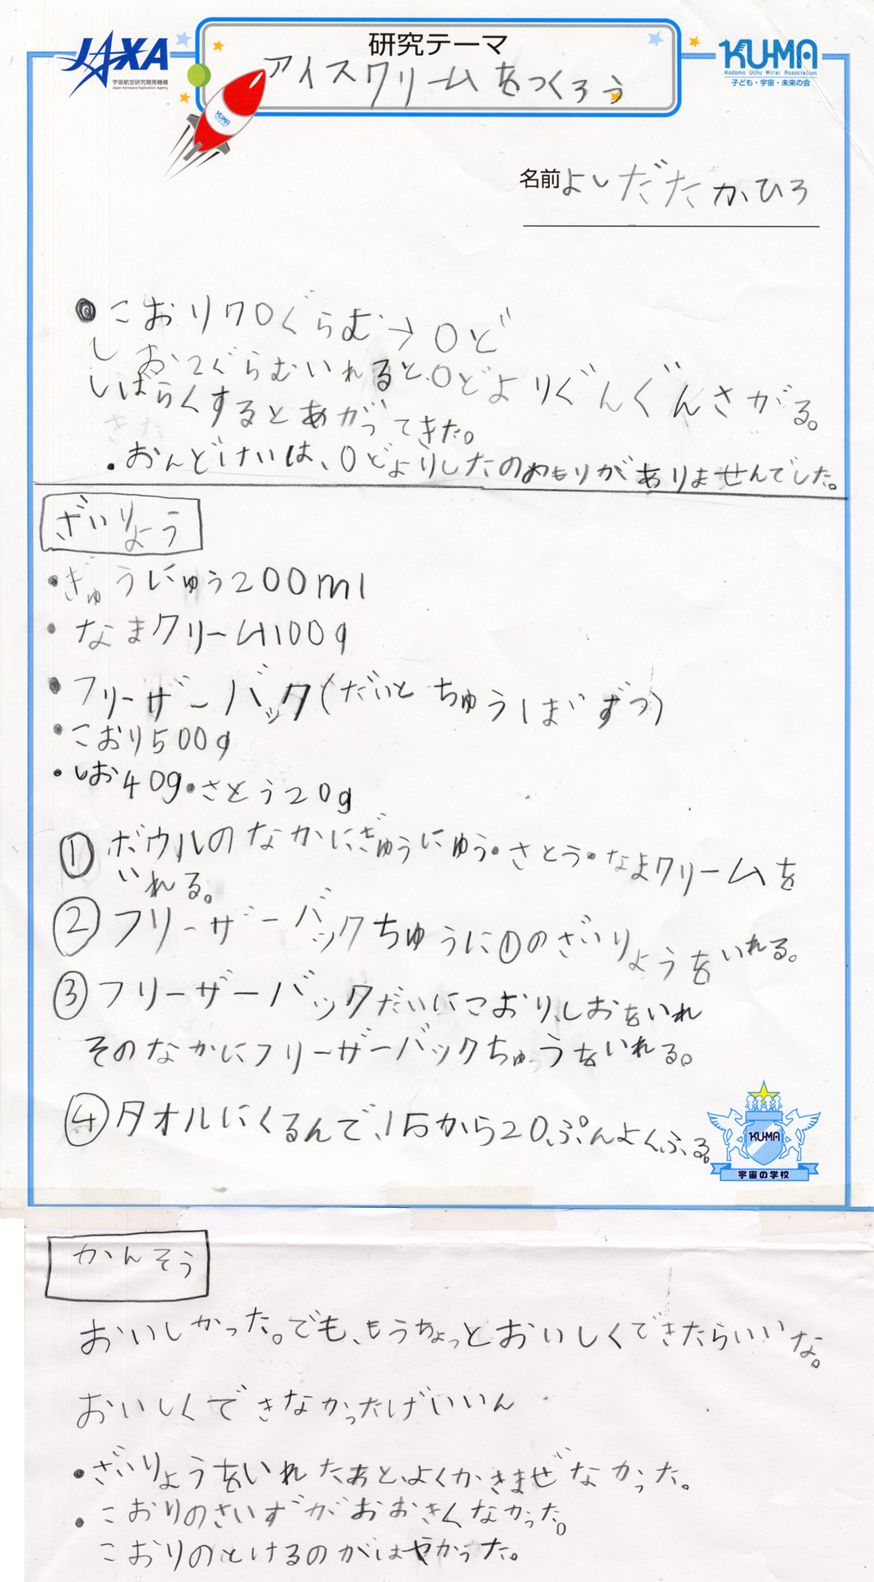 JAXA
宇宙航空研究開発機構
Japan Aerospace Exploration Agency
研究テーマ
アイスクリームをつくろう
KU-MA
Kodomo Uchu Mirai Association
子ども・宇宙・未来の会
KU-MA
名前 よしだたかひろ
こおり70ぐらむ→0ど
しお2ぐらむいれると、0どよりぐんぐんさがる。
しばらくするとあがってきた。
・おんどけいは、0どよりしたのめもりがありませんでした。
ざいりょう
・ぎゅうにゅう200ml
・なまクリーム100g
・フリーザーバック(だいとちゅう1まいずつ)
・こおり500g
・しお40g・さとう20g
①ボウルのなかにぎゅうにゅう・さとう・なまクリームを
いれる。
②フリーザーバックちゅうに①のざいりょうをいれる。
③フリーザーバックだいにこおり、しおをいれ
そのなかにフリーザーバックちゅうをいれる。
④タオルにくるんで、15から20ぷんよくふる。
KU-MA
宇宙の学校
かんそう
おいしかった。でも、もうちょっとおいしくできたらいいな。
おいしくできなかったげいいん
・ざいりょうをいれたあと、よくかきまぜなかった。
・こおりのさいずがおおきくなかった。
こおりのとけるのがはやかった。